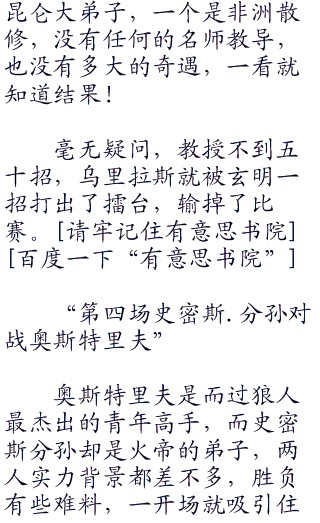 昆仑大弟子，一个是非洲散
修，没有任何的名师教导，
也没有多大的奇遇，一看就
知道结果！
毫无疑问，教授不到五
十招，乌里拉斯就被玄明一
招打出了擂台，输掉了比
赛。[请牢记住有意思书院]
[百度一下“有意思书院”]
“第四场史密斯.分孙对
战奥斯特里夫”
奥斯特里夫是而过狼人
最杰出的青年高手，而史密
斯分孙却是火帝的弟子，两
人实力背景都差不多，胜负
有些难料，一开场就吸引住